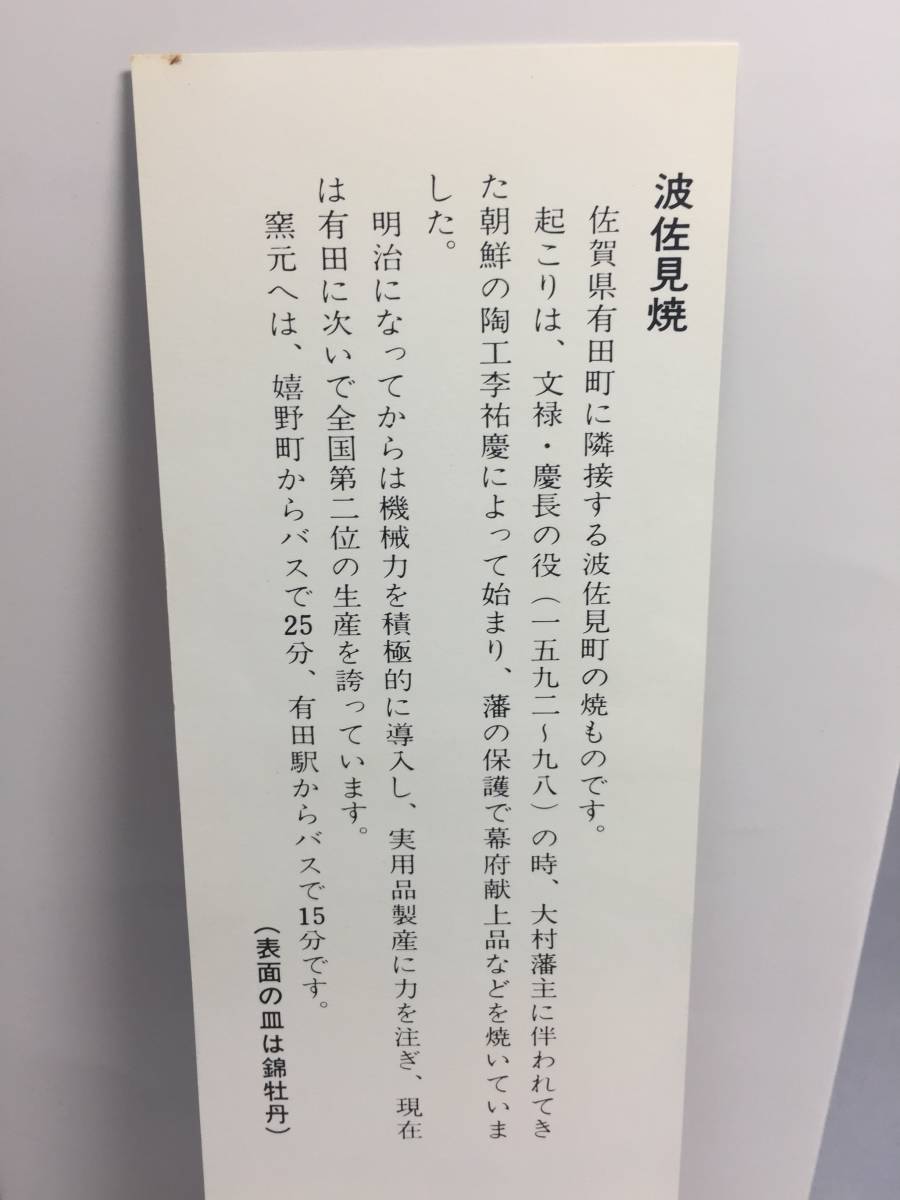 波佐見焼
佐賀県有田町に隣接する波佐見町の焼ものです。
起こりは、文禄・慶長の役（一五九二〜九八）の時、大村藩主に伴われてき
た朝鮮の陶工李祐慶によって始まり、藩の保護で幕府献上品などを焼いていま
した。
明治になってからは機械力を積極的に導入し、実用品製産に力を注ぎ、現在
は有田に次いで全国第二位の生産を誇っています。
窯元へは、嬉野町からバスで25分、有田駅からバスで15分です。
（表面の皿は錦牡丹）